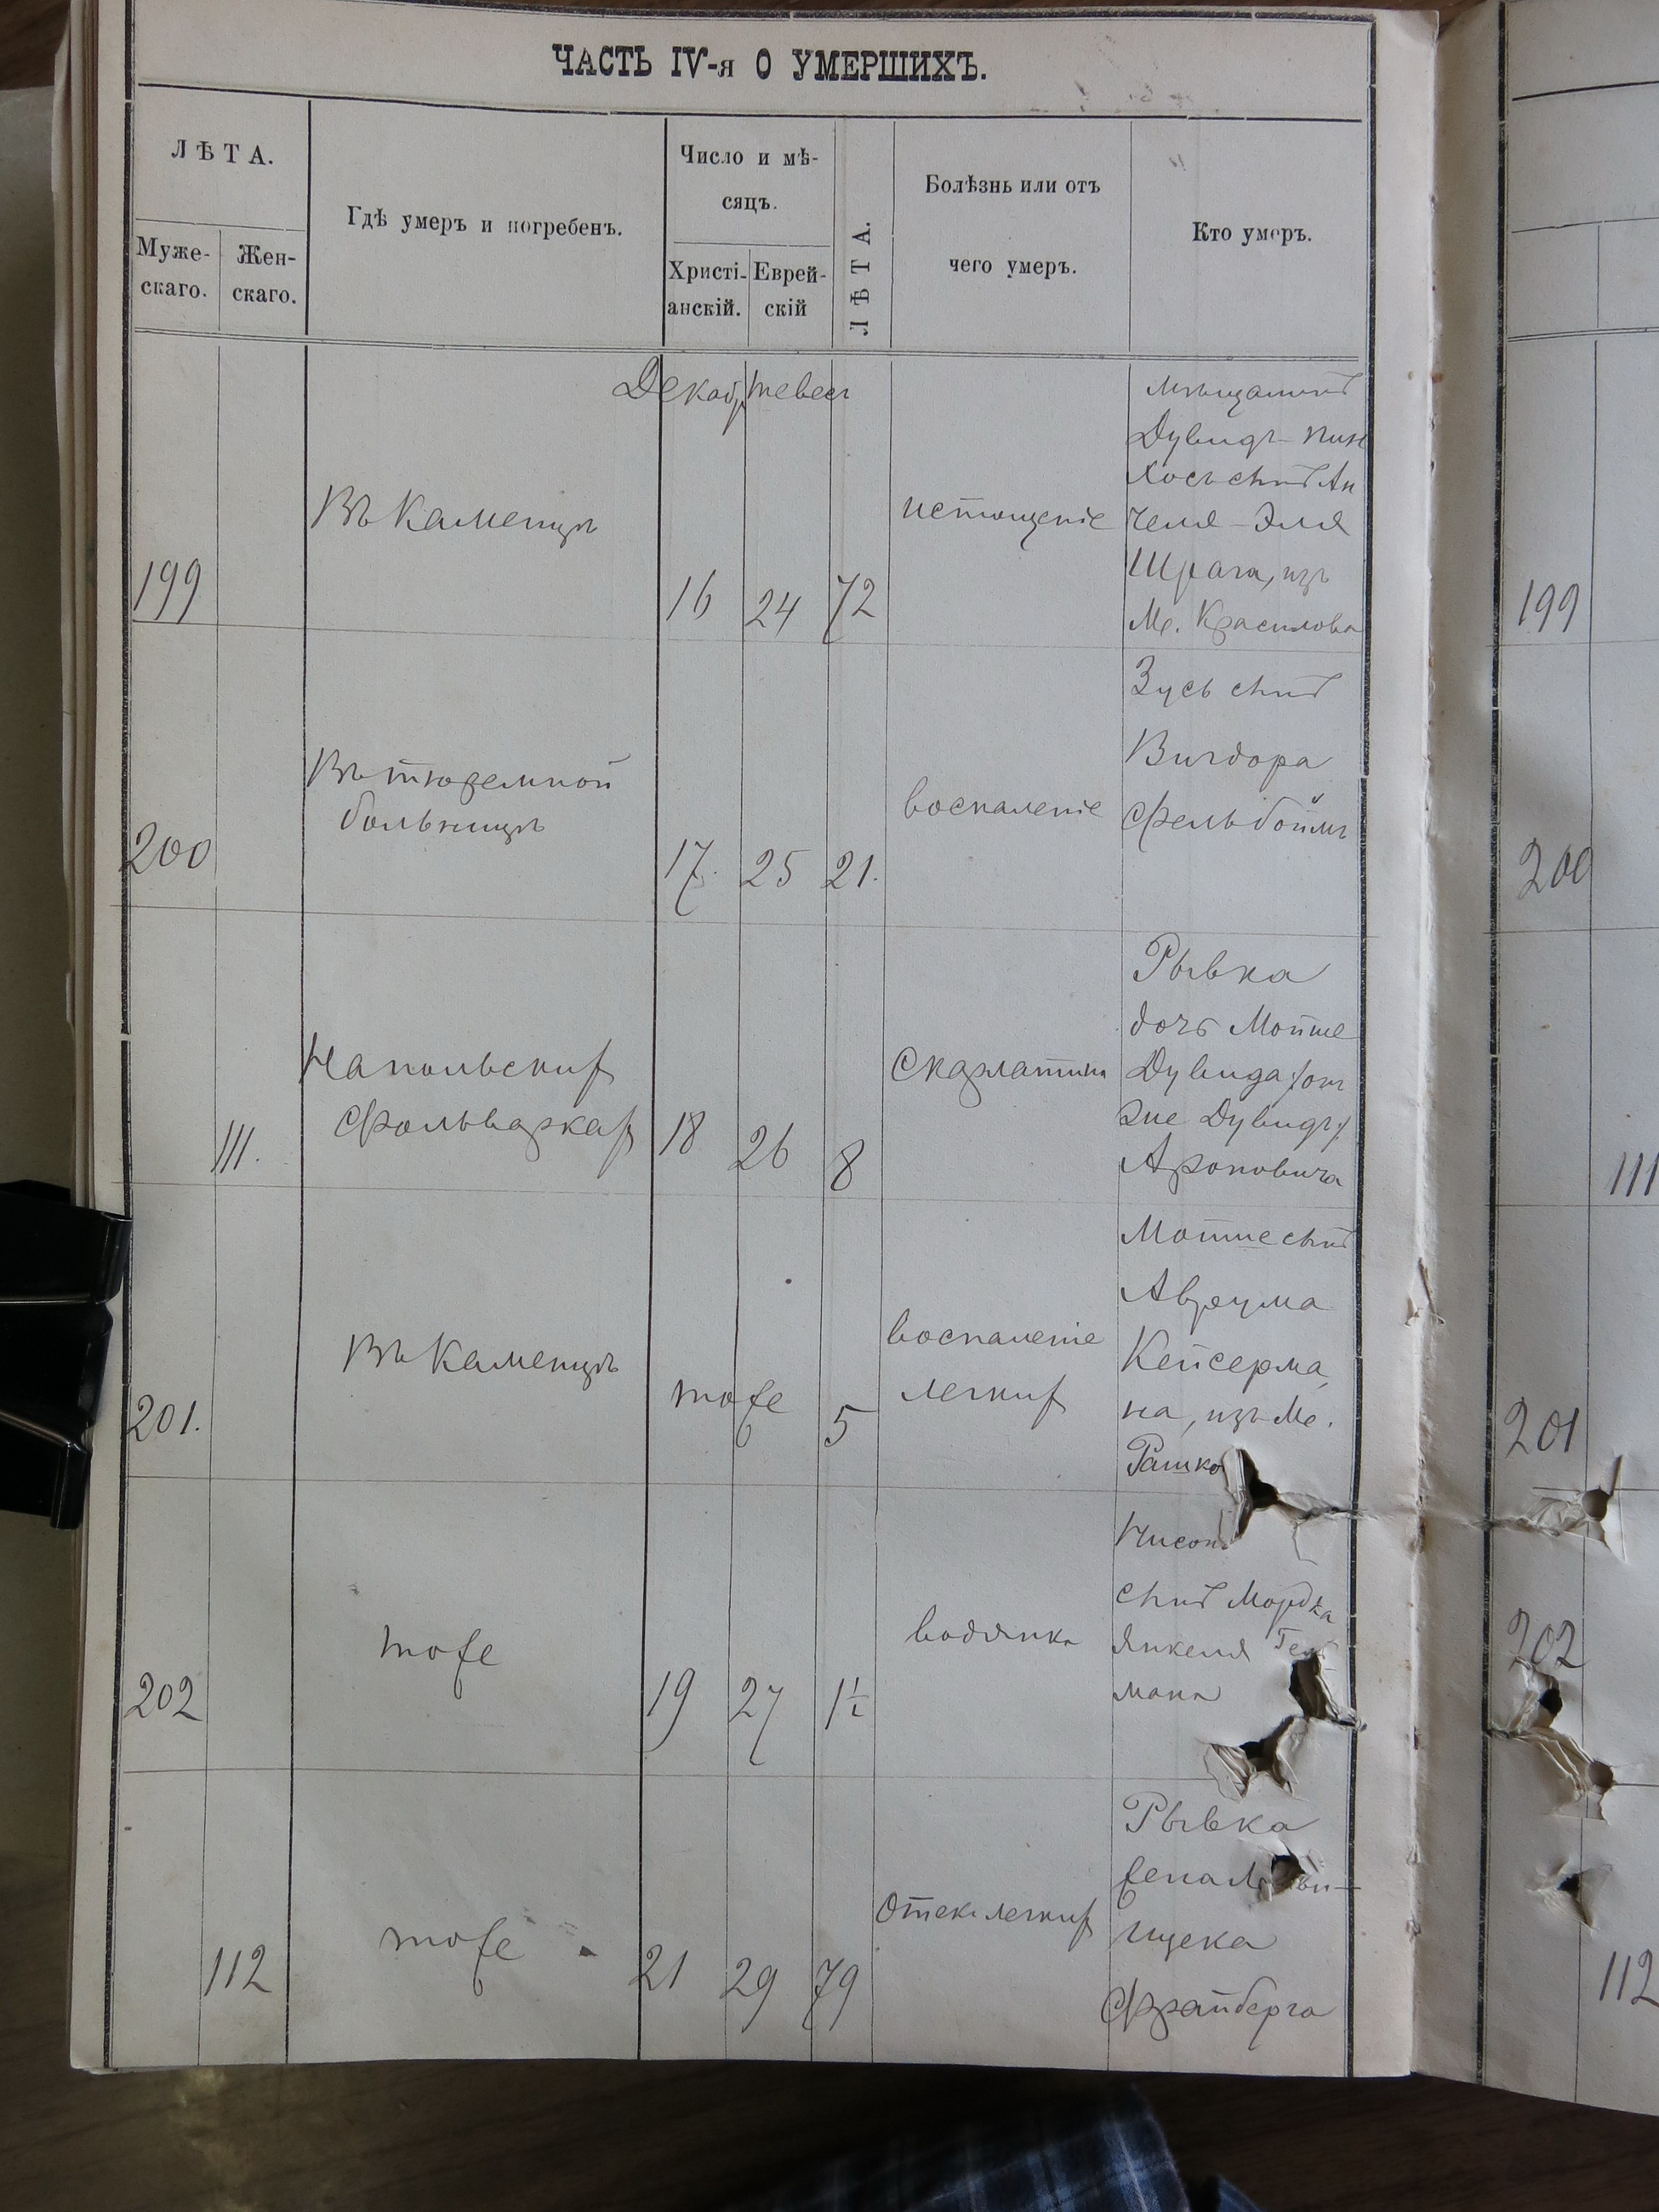 ЧАСТЬ IV-я О УМЕРШИХЪ.
ЛѢТА.
Муже-
скаго.
Жен-
скаго.
Гдѣ умеръ и погребенъ.
Число и мѣ-
сяцъ.
Христі-
анскій.
Еврей-
скій
ЛѢТА.
Болѣзнь или отъ
чего умеръ.
Кто умеръ.
Декабр тевес
199
Въ Каменцѣ
16
24
72
истощеніе
мѣщанинъ
Дувидъ-Пин
хось сынъ Ан
челя-Эля
Шрага, изъ
М. Красилова
199
200
Въ тюремной
больницѣ
17.
25
21.
воспаленіе
Зусь сынъ
Вигдора
Фельбоймъ
200
111.
На польскихъ
фольваркахъ
18
26
8
Скарлатина
Рывка
дочь Мотше
Дувида /он
же Дувидъ/
Ароновича
111
201.
Въ Каменцѣ
тоже
5
воспаленіе
легкихъ
Мотше сынъ
Аврума
Кейсерма
на, изъ М.
Рашко
201
202
тоже
19
27
1½
водянка
Нисон
сынъ Мордка
Янкеля
мана
202
112
тоже
21
29
79
Отекъ легкихъ
Рывка
жена
ищека
Фрайберга
112